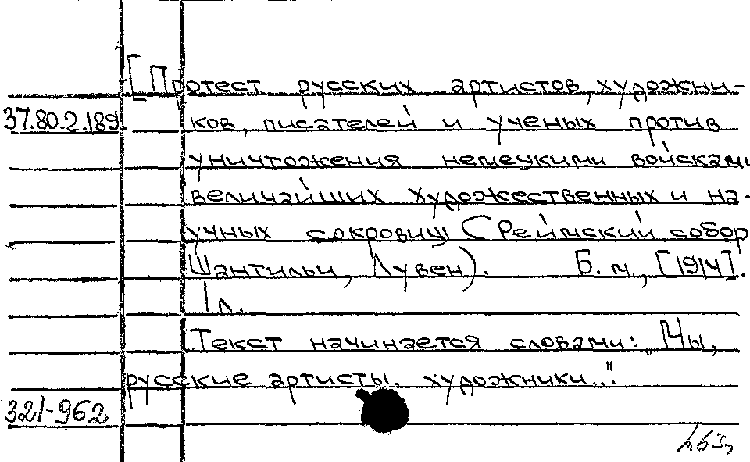 [Протест русских артистов, художни-
37.80.2.189 ков, писателей и ученых против
уничтожения немецкими войсками
величайших художественных и на-
учных сокровищ (Реймский собор
Шантильи, Лувен). Б.м., [1914].
1 л.
Текст начинается словами: „Мы,
русские артисты, художники..."
321-962